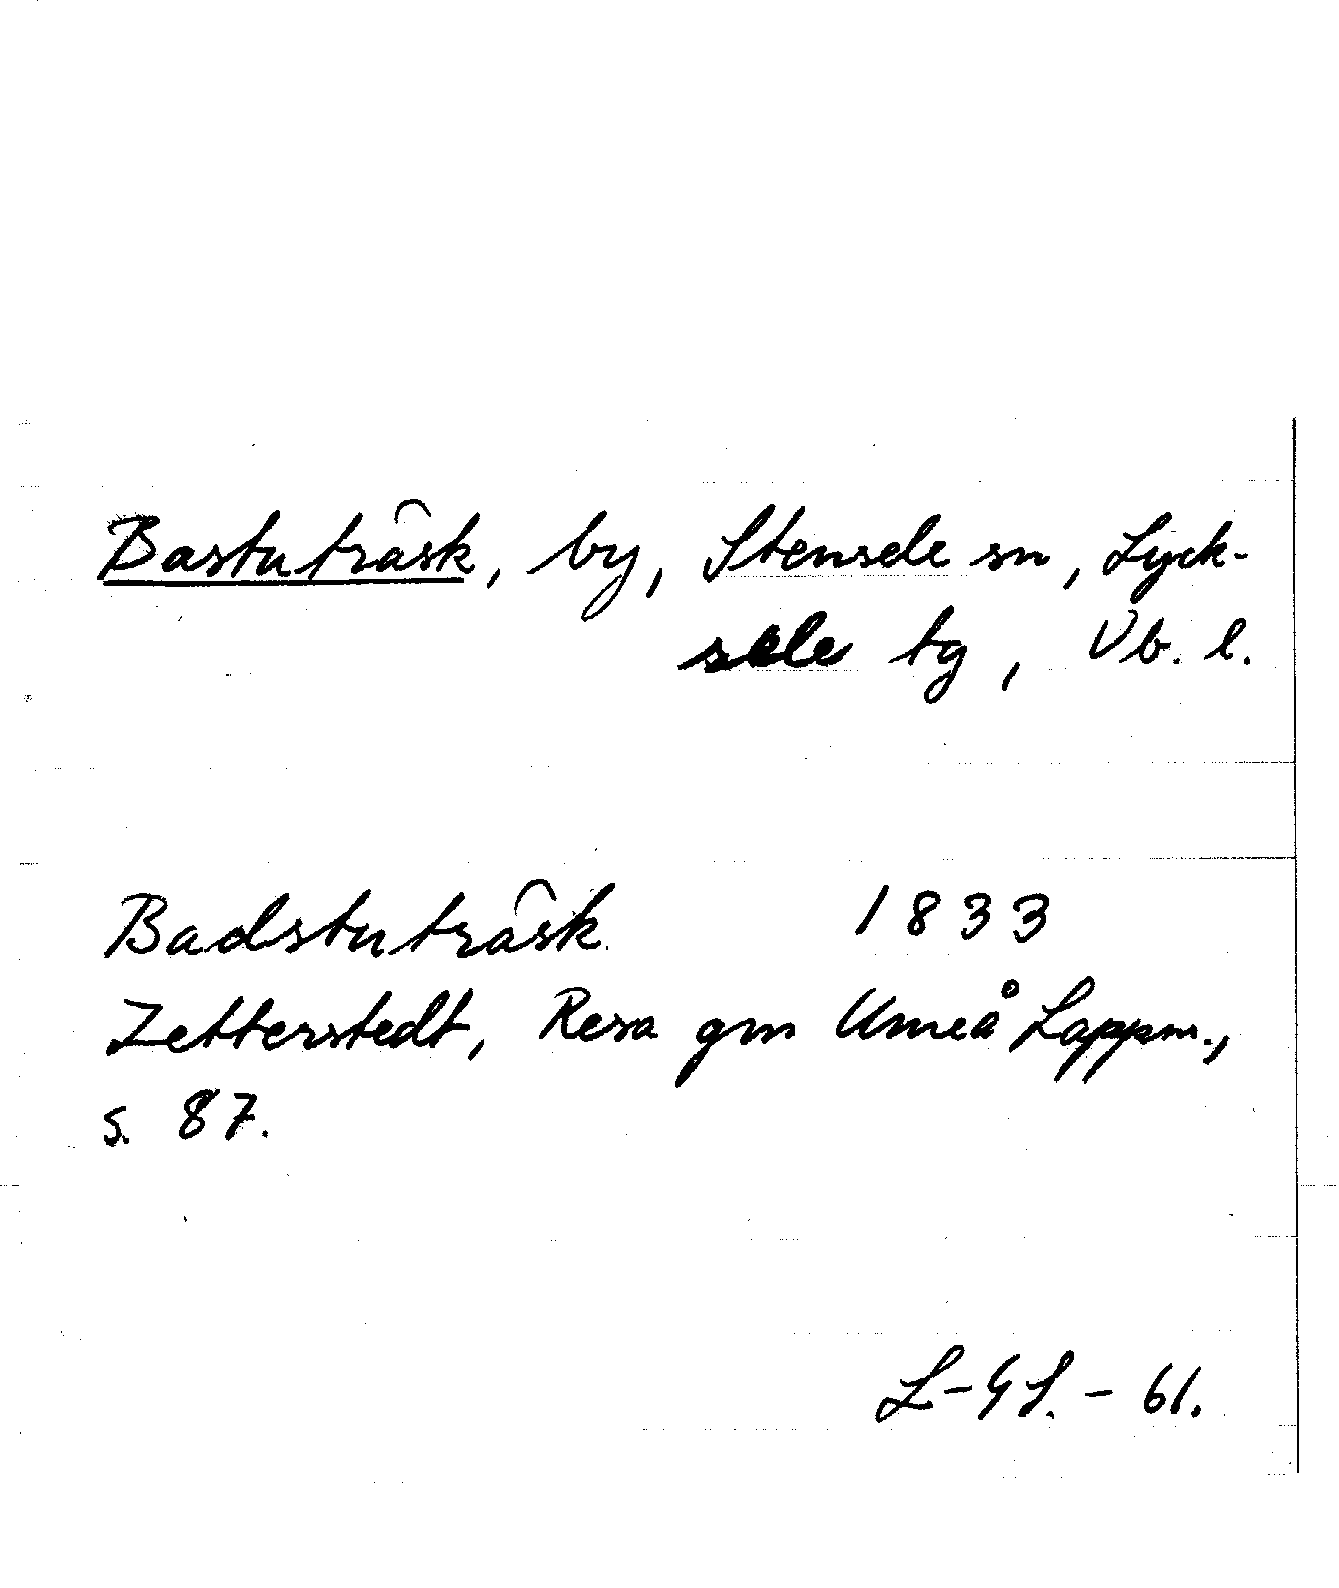 Bastuträsk, by, Stensele sn, Lyck-
sele tg, Vb. l.
Badstuträsk 1833
Zetterstedt, Resa gm Umeå Lappm.,
s. 87.
L-GL. - 61.